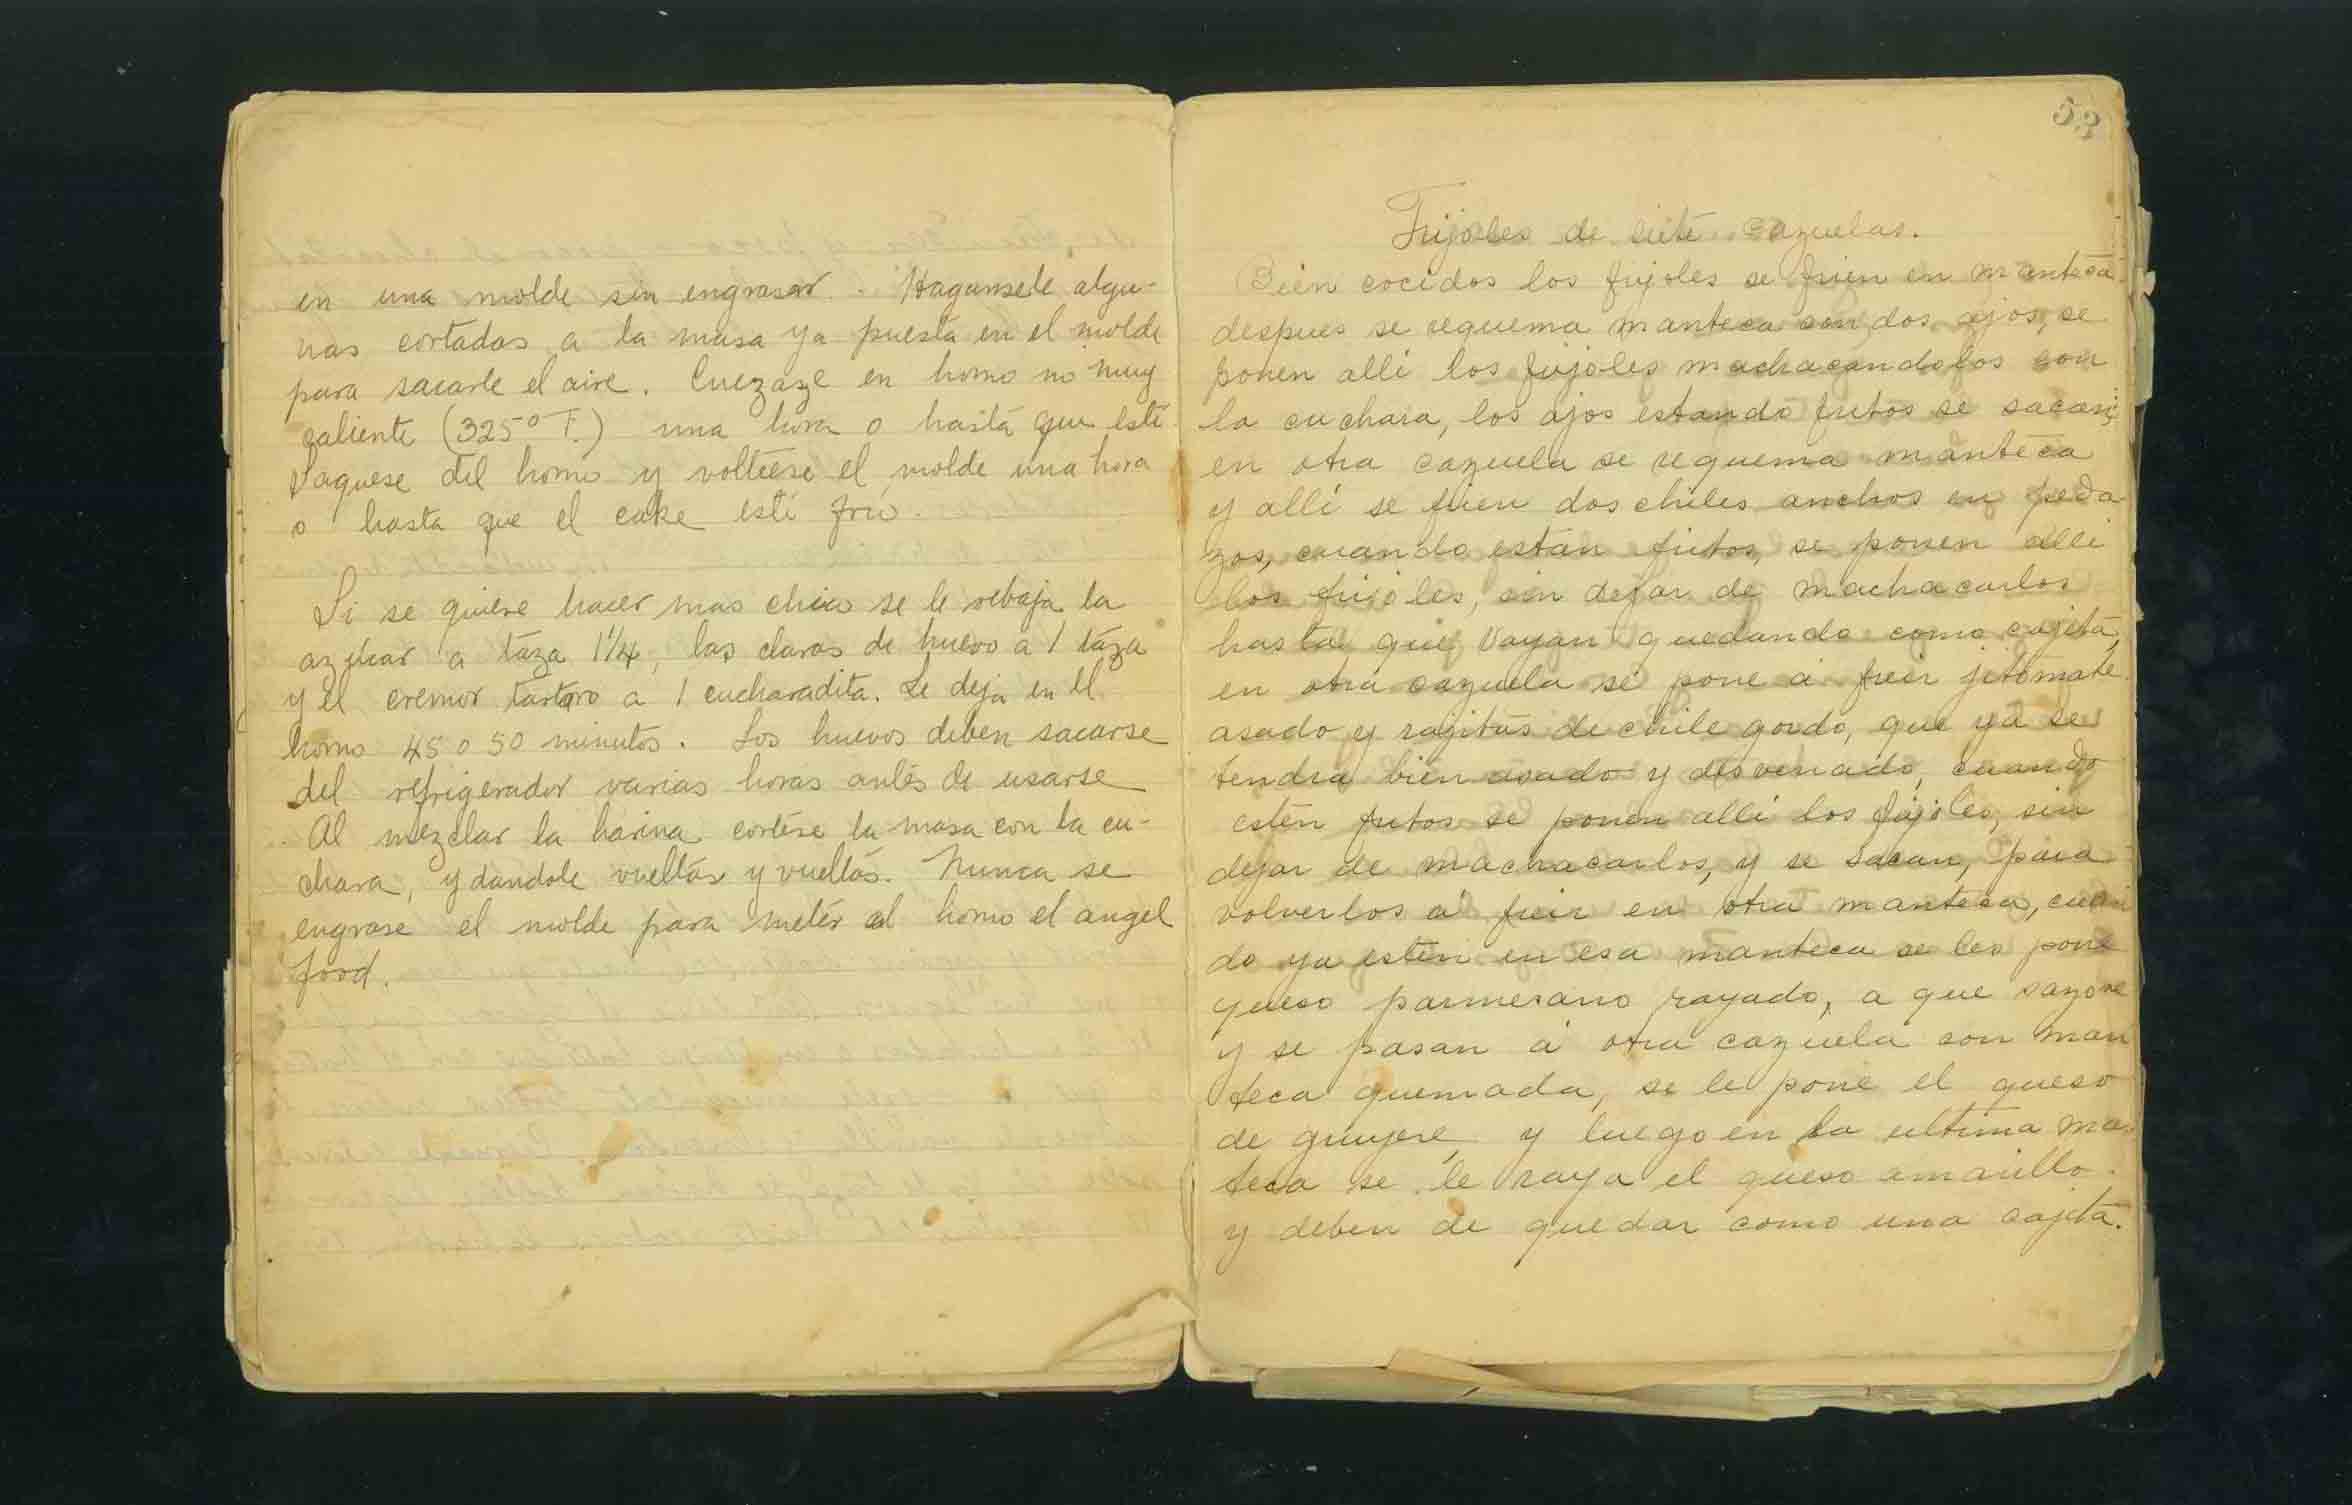 en una molde sin engrasar. Hagansele algu-
nas cortadas a la masa ya puesta en el molde
para sacarle el aire. Cuezaze en horno no muy
caliente (325° F.) una hora o hasta que esté
Saquese del horno y voltéese el molde una hora
o hasta que el cake esté frio.
Si se quiere hacer mas chico se le rebaja la
azucar a taza 1 1/4, las claras de huevo a 1 taza
y el cremor tartaro a 1 cucharadita. Se deja en el
horno 45 o 50 minutos. Los huevos deben sacarse
del refrigerador varias horas antes de usarse
Al mezclar la harina cortése la masa con la cu-
chara, y dandole vueltas y vueltas. Nunca se
engrase el molde para metér al horno el angel
food.
53
Frijoles de siete cazuelas.
Bien cocidos los frijoles se frien en manteca
despues se requema manteca con dos ajos, se
ponen alli los frijoles machacandolos con
la cuchara, los ajos estando fritos se sacan;
en otra cazuela se requema manteca
y allí se frien dos chiles anchos en peda
zos, cuando estan fritos, se ponen alli
los frijoles, sin dejar de machacarlos
hasta que vayan quedando como cajeta,
en otra cazuela se pone á freir jitomate
asado y rajitas de chile gordo, que ya se
tendra bien asado y desvenado, cuando
esten fritos se ponen alli los frijoles, sin
dejar de machacarlos, y se sacan, para
volverlos á freir en otra manteca, cuan
do ya esten en esa manteca se les pone
queso parmesano rayado, a que sazone
y se pasan á otra cazuela con man
teca quemada, se le pone el queso
de gruyere, y luego en la ultima man
teca se le raya el queso amarillo
y deben de quedar como una cajeta.